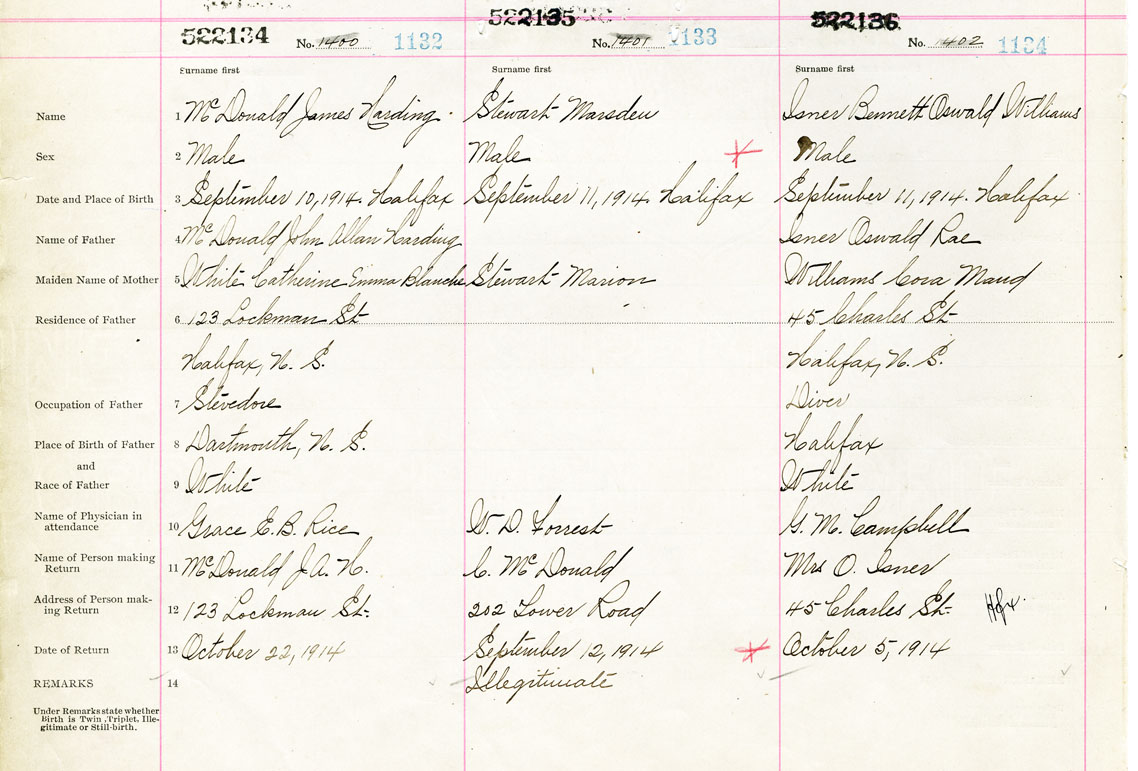 522134 No. 1400 1132 522135 No. 1401 1133 522136 No. 1402 1134
Surname first Surname first Surname first
Name 1 McDonald James Harding. Stewart Marsden Isner Bennett Oswald Williams
Sex 2 Male Male Male
Date and Place of Birth 3 September 10, 1914. Halifax September 11, 1914. Halifax September 11, 1914. Halifax
Name of Father 4 McDonald John Allan Harding Isner Oswald Rae
Maiden Name of Mother 5 White Catherine Emma Blanche Stewart Marion Williams Cora Maud
Residence of Father 6 123 Lockman St. 45 Charles St.
Halifax, N. S. Halifax, N. S.
Occupation of Father 7 Stevedore Diver
Place of Birth of Father 8 Dartmouth, N. S. Halifax
and
Race of Father 9 White White
Name of Physician in
attendance 10 Grace E. B. Rice W. D. Forrest G. M. Campbell
Name of Person making
Return 11 McDonald J. A. H. C. McDonald Mrs O. Isner
Address of Person mak-
ing Return 12 123 Lockman St. 202 Tower Road 45 Charles St. Hfx.
Date of Return 13 October 22, 1914 September 12, 1914 October 5, 1914
REMARKS 14 Illegitimate
Under Remarks state whether
Birth is Twin, Triplet, Ille-
gitimate or Still-birth.